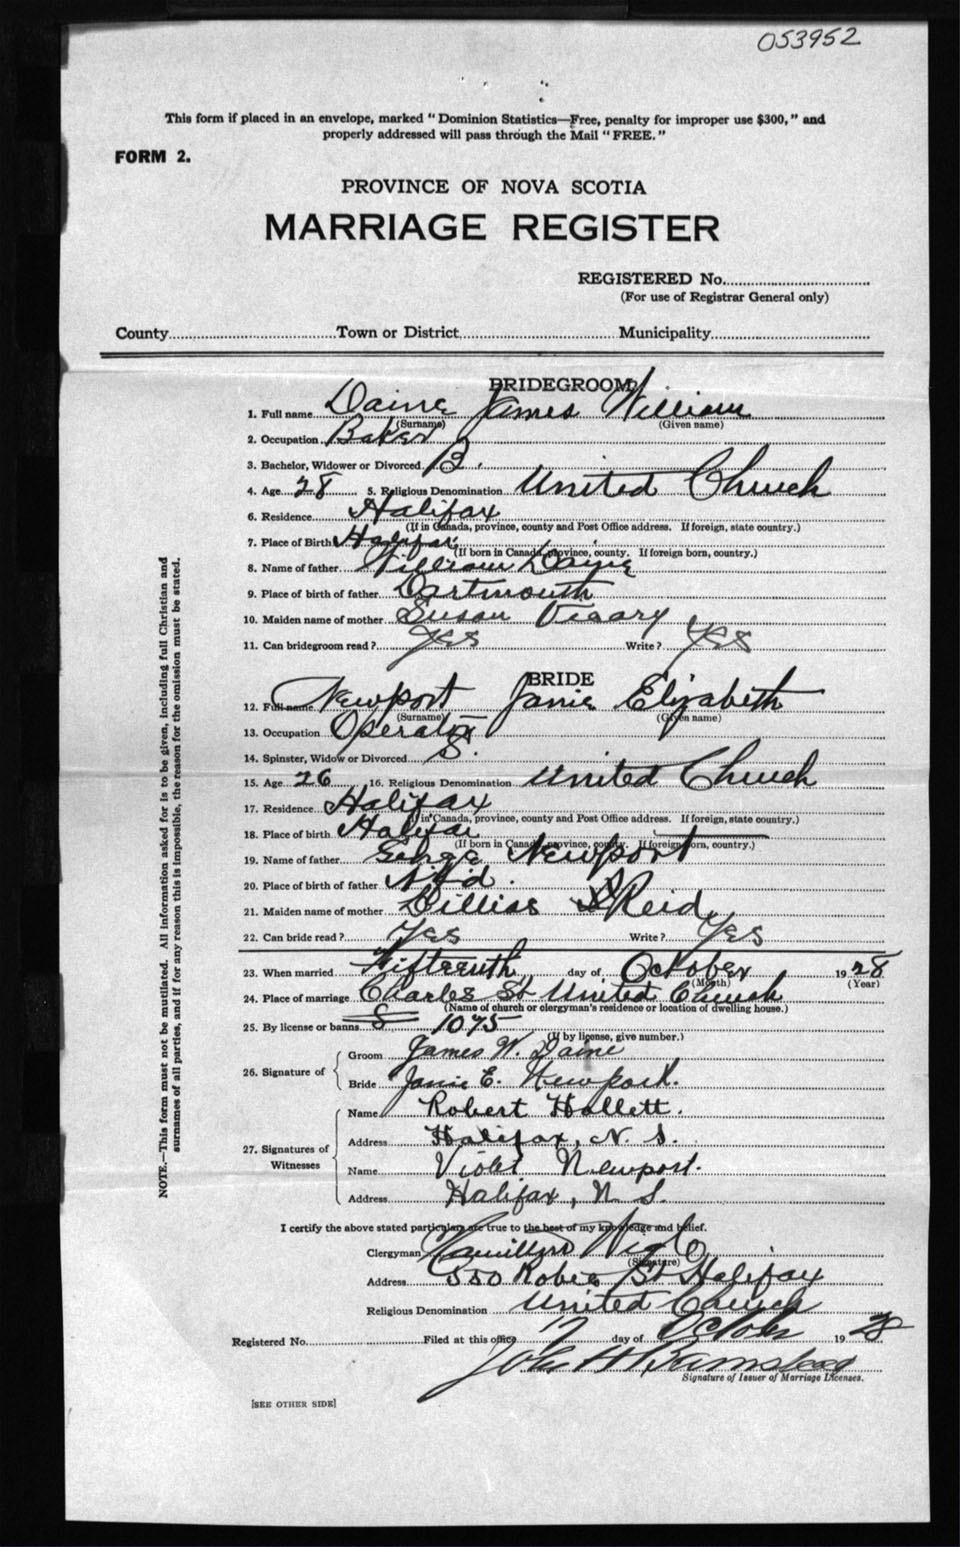 053952
This form if placed in an envelope, marked "Dominion Statistics—Free, penalty for improper use $300," and
properly addressed will pass through the Mail "FREE."
FORM 2.
PROVINCE OF NOVA SCOTIA
MARRIAGE REGISTER
REGISTERED No.
(For use of Registrar General only)
County Town or District Municipality
BRIDEGROOM
1. Full name Daine James William
(Surname) (Given name)
2. Occupation Baker
3. Bachelor, Widower or Divorced B.
4. Age 28 5. Religious Denomination United Church
6. Residence Halifax
(If in Canada, province, county and Post Office address. If foreign, state country.)
7. Place of Birth Halifax
(If born in Canada, province, county. If foreign born, country.)
8. Name of father William Daine
9. Place of birth of father Dartmouth
10. Maiden name of mother Susan
11. Can bridegroom read? yes Write? yes
BRIDE
12. Full name Newport Janie Elizabeth
(Surname) (Given name)
13. Occupation Operator
14. Spinster, Widow or Divorced S.
15. Age 26 16. Religious Denomination United Church
17. Residence Halifax
(If in Canada, province, county and Post Office address. If foreign, state country.)
18. Place of birth Halifax
(If born in Canada, province, county. If foreign born, country.)
19. Name of father George Newport
20. Place of birth of father Nfld.
21. Maiden name of mother Reid
22. Can bride read? Yes Write? Yes
23. When married Fifteenth day of October 1928
(Month) (Year)
24. Place of marriage Charles St United Church
(Name of church or clergyman's residence or location of dwelling house.)
25. By license or banns 1075
(If by license, give number.)
26. Signature of
Groom James W. Daine
Bride Janie E. Newport.
27. Signatures of Witnesses
Name Robert Hollett.
Address Halifax, N. S.
Name Violet Newport.
Address Halifax, N. S.
I certify the above stated particulars are true to the best of my knowledge and belief.
Clergyman
(Signature)
Address 550 Robie St Halifax
Religious Denomination United Church
Registered No. Filed at this office 17 day of October 1928
John H
Signature of Issuer of Marriage Licenses.
[SEE OTHER SIDE]
NOTE.—This form must not be mutilated. All information asked for is to be given, including full Christian and
surnames of all parties, and if for any reason this is impossible, the reason for the omission must be stated.